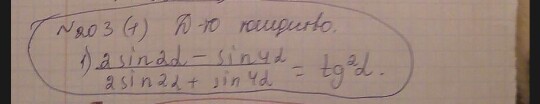 N203 (1) Д-ю тождество.
1) 2sin2α - sin4α / 2sin2α + sin4α = tg²α.